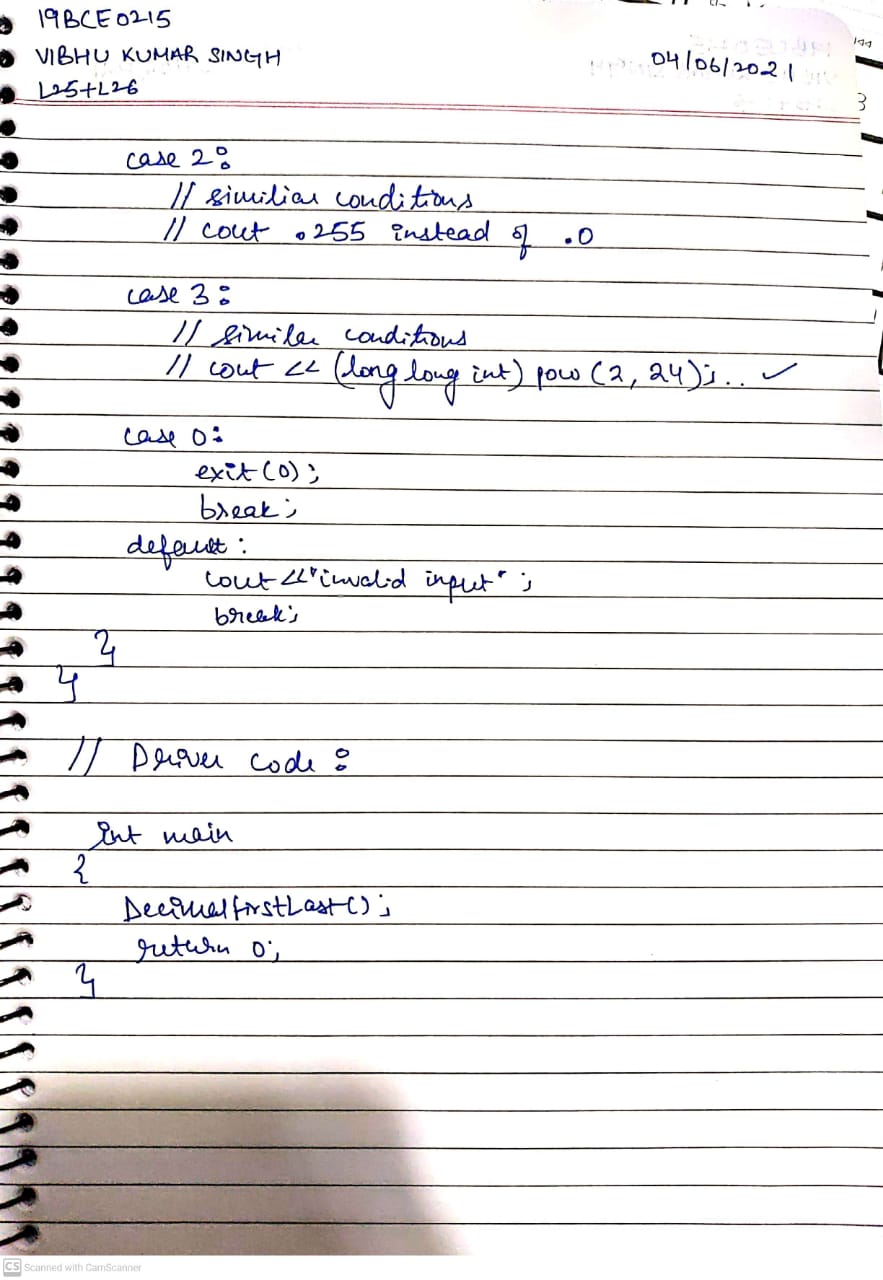 19BCE0215
VIBHU KUMAR SINGH
04/06/2021
L25+L26
3
case 2:
// similiar conditions
// cout .255 instead of .0
case 3:
// similar conditions
// cout << (long long int) pow (2, 24); ..✓
case 0:
exit (0);
break;
default:
cout <<"invalid input";
break;
}
}
// Driver code:
int main
{
DecimalfirstLast();
return 0;
}
CS Scanned with CamScanner